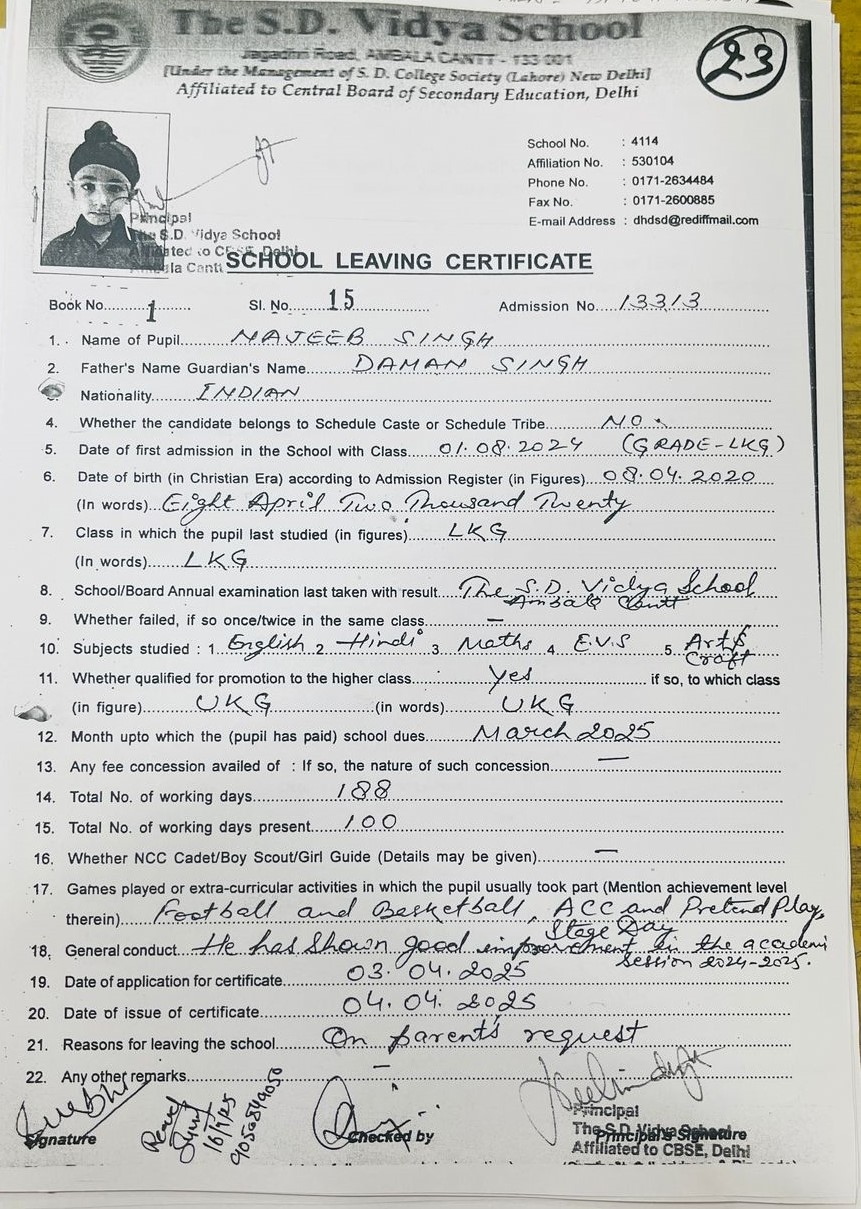 The S.D. Vidya School
Jagadhri Road, AMBALA CANTT - 133 001
[Under the Management of S. D. College Society (Lahore) New Delhi]
Affiliated to Central Board of Secondary Education, Delhi
23
School No. : 4114
Affiliation No. : 530104
Phone No. : 0171-2634484
Fax No. : 0171-2600885
E-mail Address : dhdsd@rediffmail.com
Principal
The S.D. Vidya School
Affiliated to CBSE, Delhi
Ambala Cantt
SCHOOL LEAVING CERTIFICATE
Book No. 1 Sl. No. 15 Admission No. 13313
1. Name of Pupil NAJEEB SINGH
2. Father's Name Guardian's Name DAMAN SINGH
Nationality INDIAN
4. Whether the candidate belongs to Schedule Caste or Schedule Tribe NO
5. Date of first admission in the School with Class 01.08.2024 (GRADE-LKG)
6. Date of birth (in Christian Era) according to Admission Register (in Figures) 08.04.2020
(In words) Eight April Two Thousand Twenty
7. Class in which the pupil last studied (in figures) LKG
(In words) LKG
8. School/Board Annual examination last taken with result The S.D. Vidya School
Ambala Cantt
9. Whether failed, if so once/twice in the same class —
10. Subjects studied : 1. English 2 Hindi 3. Maths 4. E.V.S 5. Art &
Craft
11. Whether qualified for promotion to the higher class Yes if so, to which class
(in figure) UKG (in words) UKG
12. Month upto which the (pupil has paid) school dues March 2025
13. Any fee concession availed of : If so, the nature of such concession —
14. Total No. of working days 188
15. Total No. of working days present 100
16. Whether NCC Cadet/Boy Scout/Girl Guide (Details may be given) —
17. Games played or extra-curricular activities in which the pupil usually took part (Mention achievement level
therein) Football and Basketball, ACC and Pretend Play,
Stage Day
18. General conduct He has shown good improvement in the academi
session 2024-2025.
19. Date of application for certificate 03.04.2025
20. Date of issue of certificate 04.04.2025
21. Reasons for leaving the school On parent's request
22. Any other remarks —
Signature
Checked by
Principal
The S.D. Vidya School
Principal's Signature
Affiliated to CBSE, Delhi